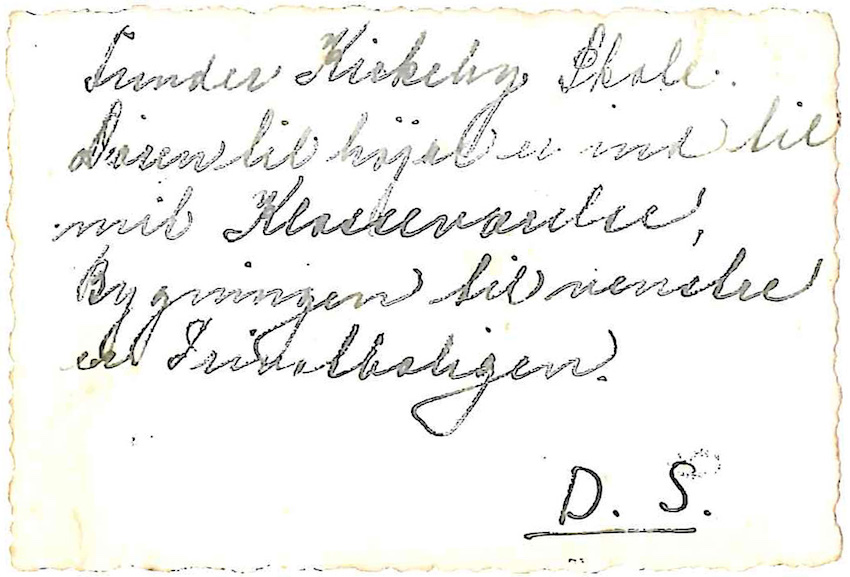 Sunder Kirkeby Skole.
Døren til højre er ind til
mit Klasseværelse,
Bygningen til venstre
er Privatboligen.
D. S.